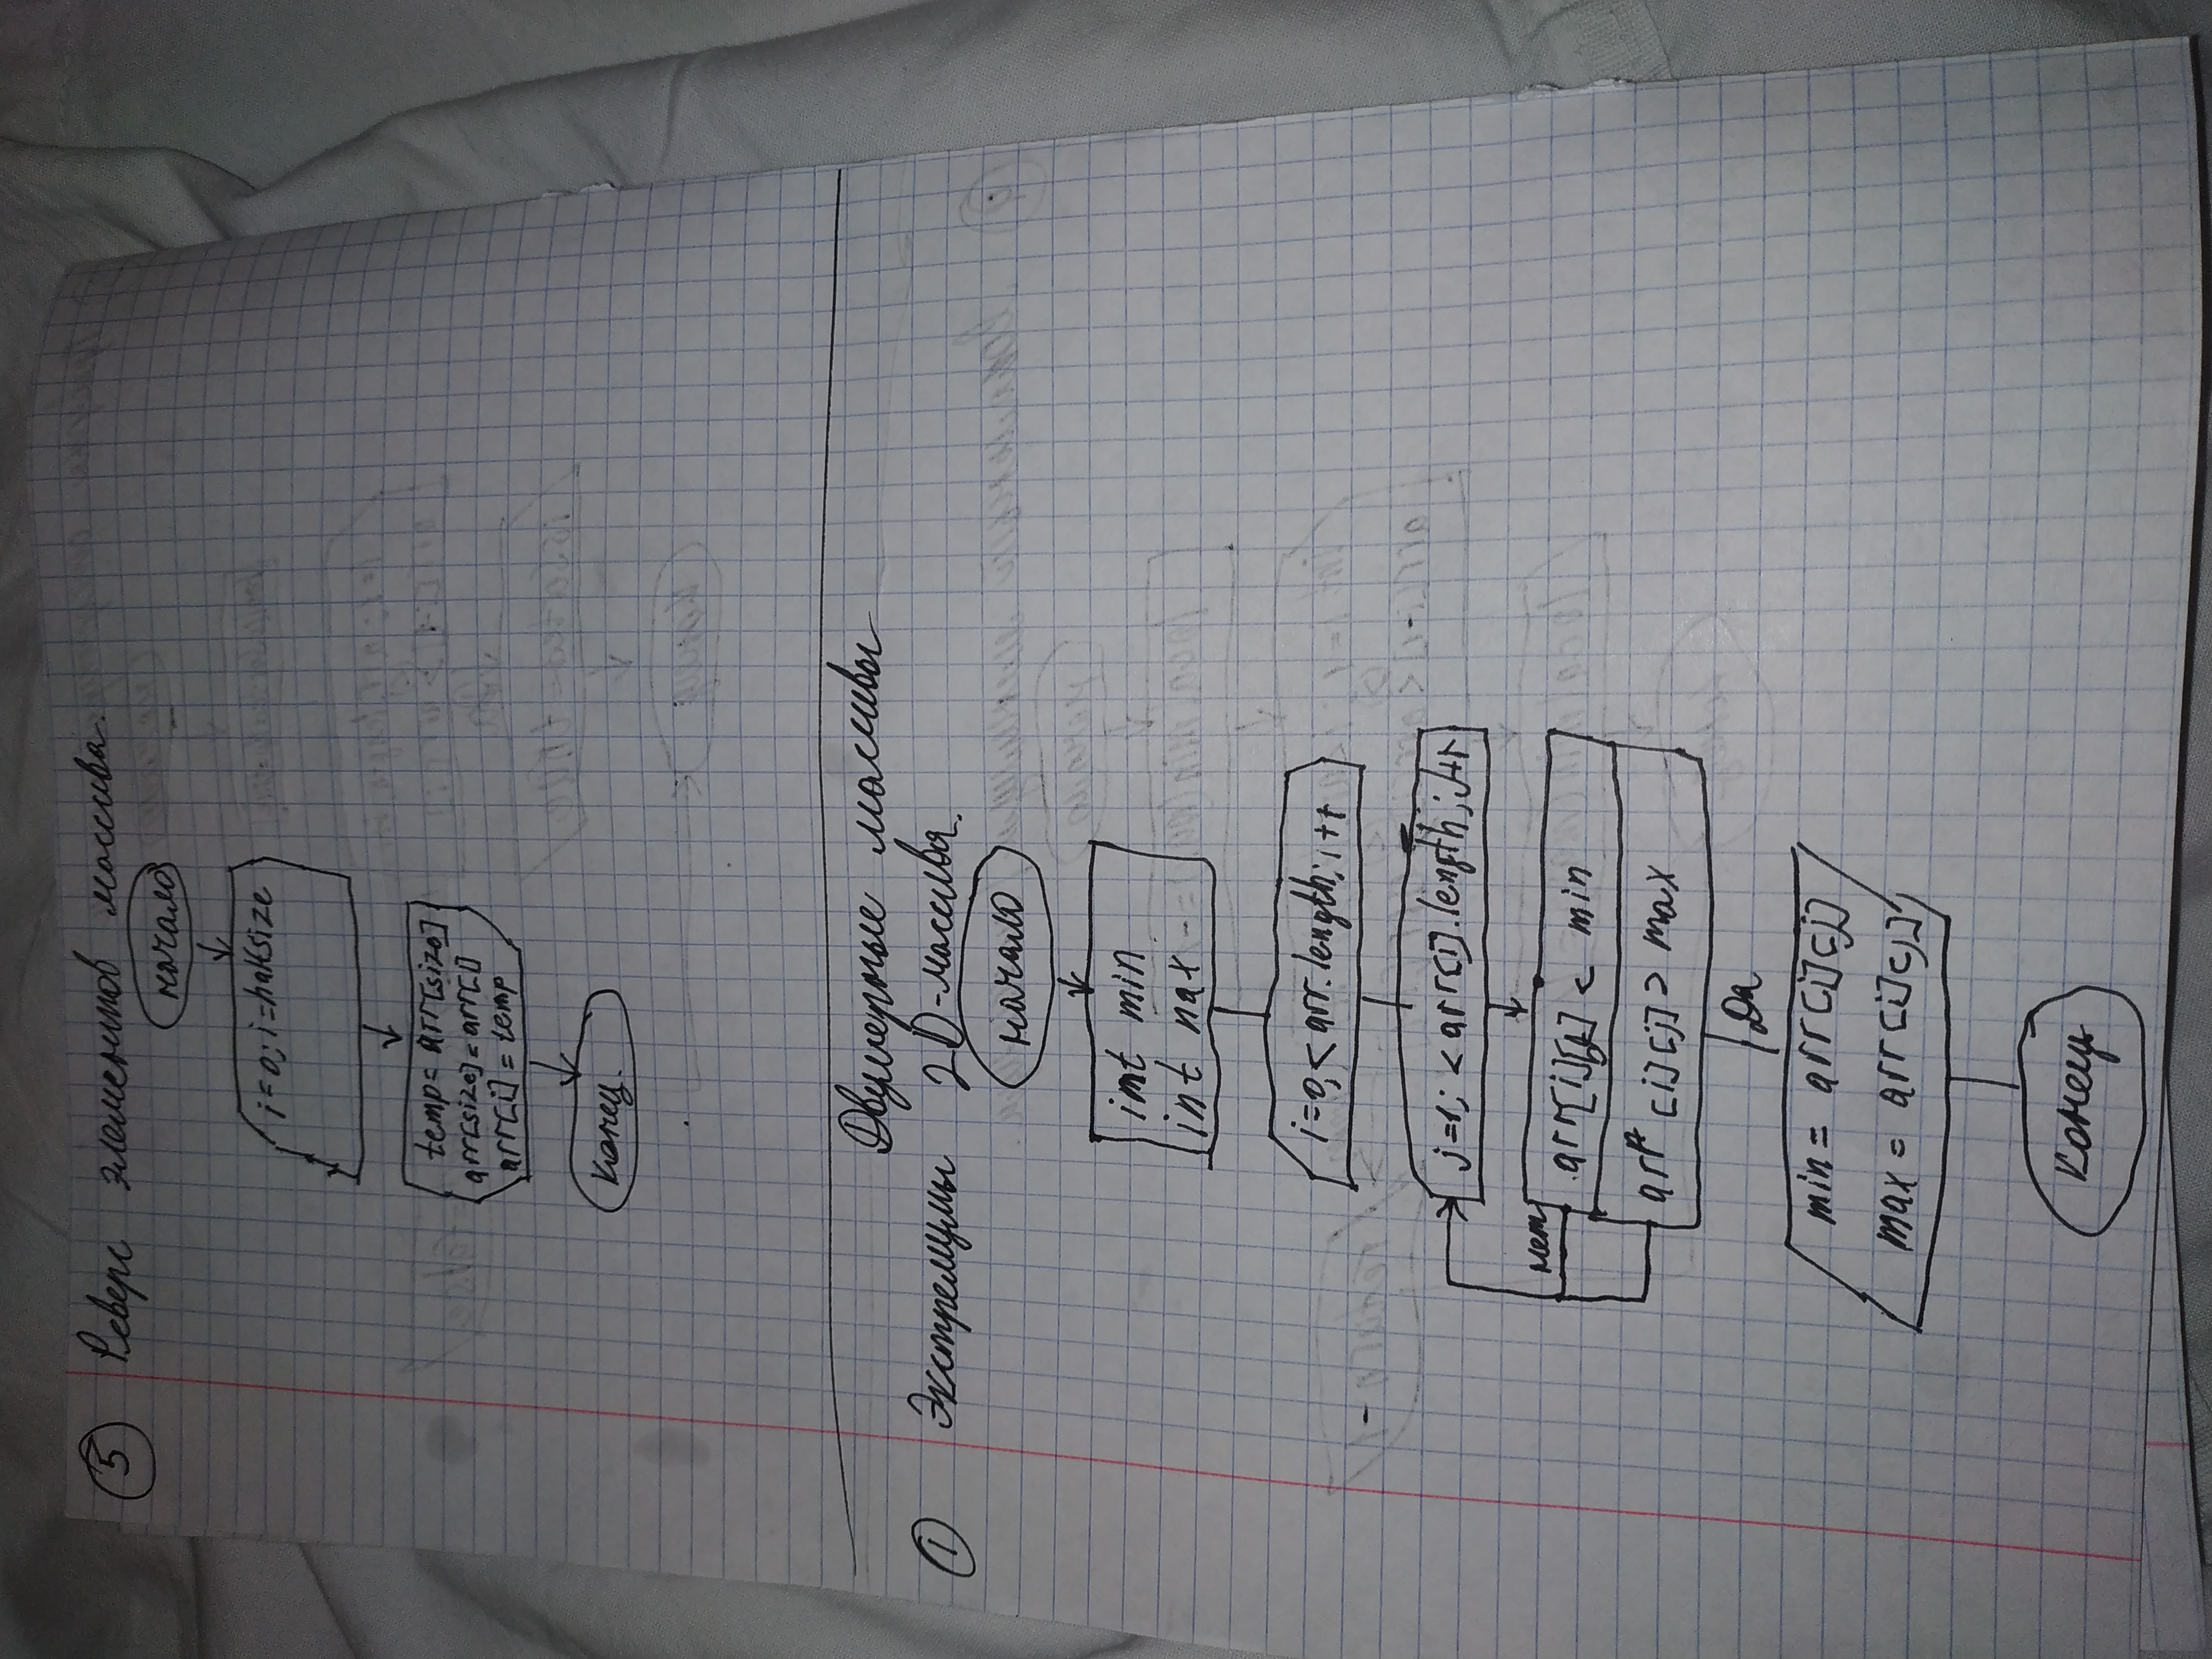 5 Реверс элементов массива.
начало
i=0; i=halfsize
temp= arr[size]
arr[size]=arr[i]
arr[i] = temp
конец.
Двумерные массивы
1 Экстремумы 2D-массива.
начало
int min
int nax
i=0,<arr.length;i++
j=1; <arr[i].length;j++
нет
arr[i][j] < min
arr [i][j] > max
Да
min = arr[i][j]
max = arr[i][j]
конец